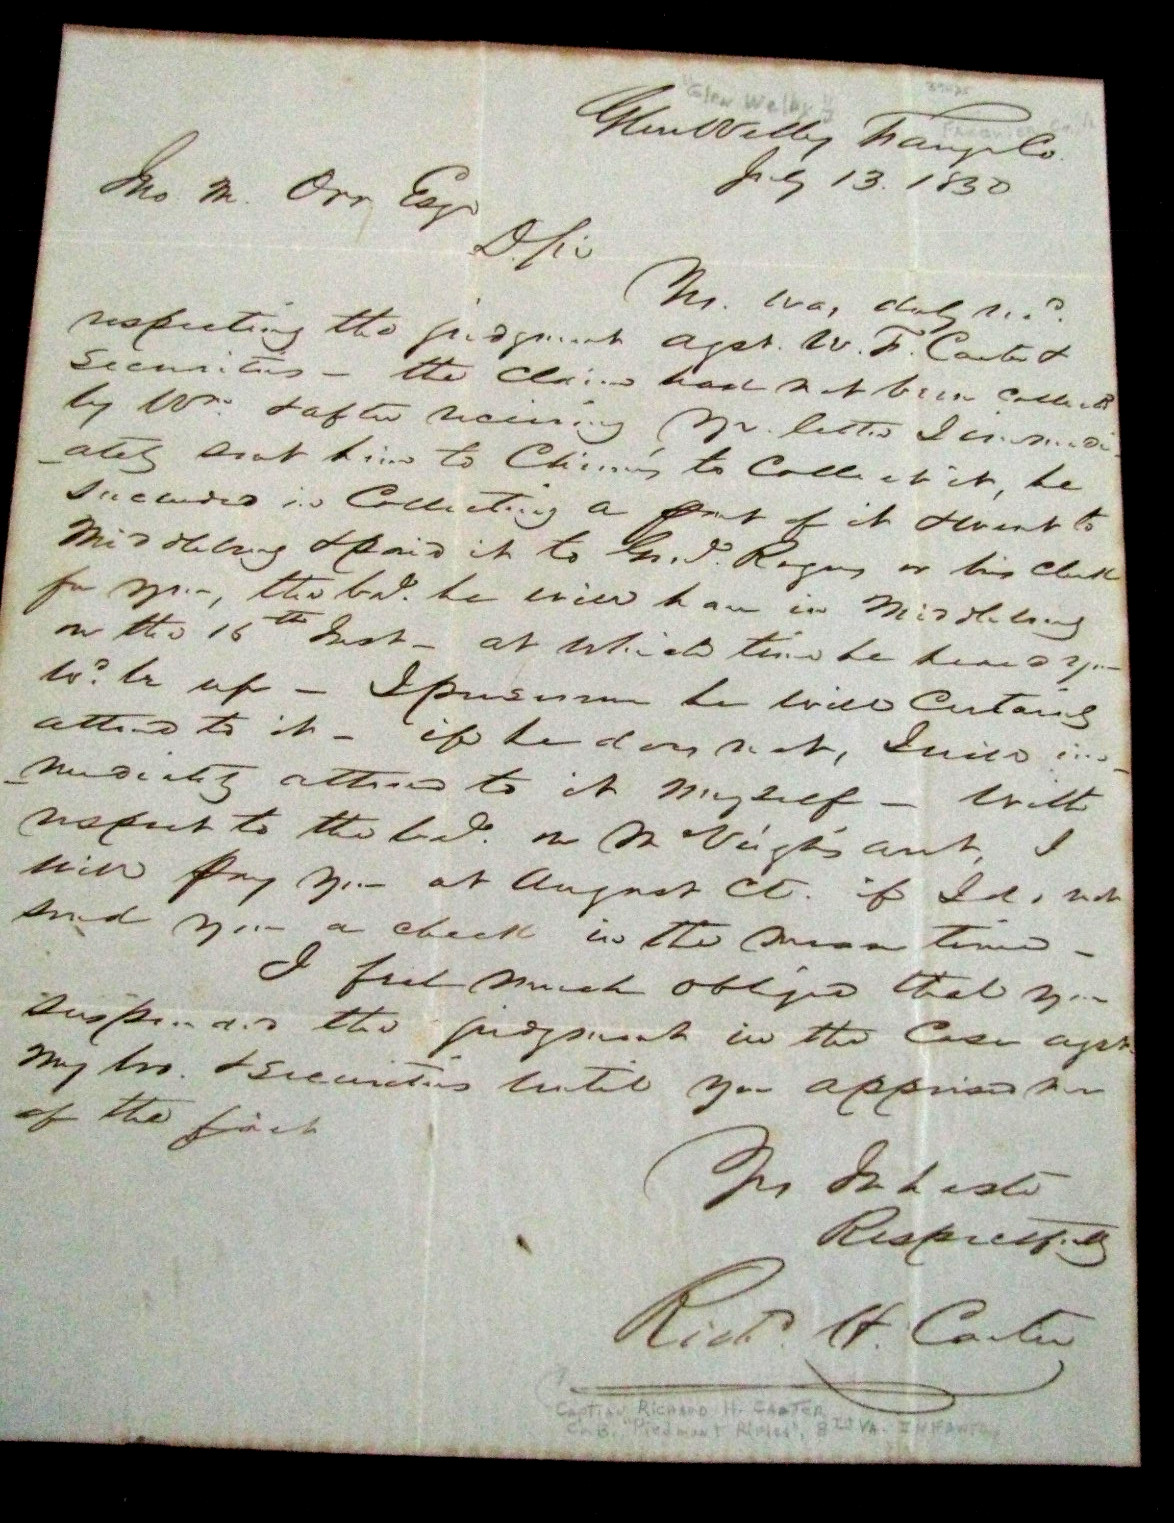 "Glen Welby"
Glen Welby Fauqr Co.
July 13. 1850
Jno. M. Orr Esqr
D. Sir
Yrs. was duly recd.
respecting the judgment agst. W. F. Carter &
Securities – the claim had not been collectd
by Wm. & after receiving yr. letter I immedi-
-ately sent him to to collect it, he
succeeded in Collecting a part of it & went to
Middleburg & paid it to Rogers or his clerk
for you, the bal. he will have in Middleburg
on the 16th Inst – at which time he heard you
wd. be up – I presume he will Certainly
attend to it – if he does not, I will im-
-mediately attend to it myself – With
respect to the bal. on McVeigh's acct, I
will pay you at August Ct. if I do not
send you a check in the mean time –
I feel much obliged that you
suspended the judgment in the Case agst.
my bro. & securities until you apprised me
of the fact
Yrs In haste
Respectfully
Richd. H. Carter
Captian Richard H. Carter
Co. B. "Piedmont Rifles", 8th VA. Infantry